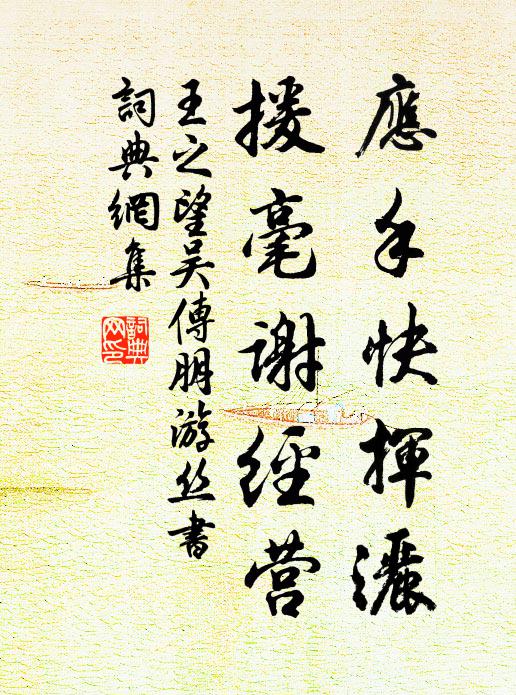 應手快揮灑
援毫謝經营
王之望吴傅朋游丝書
詞典網集
詞典網印